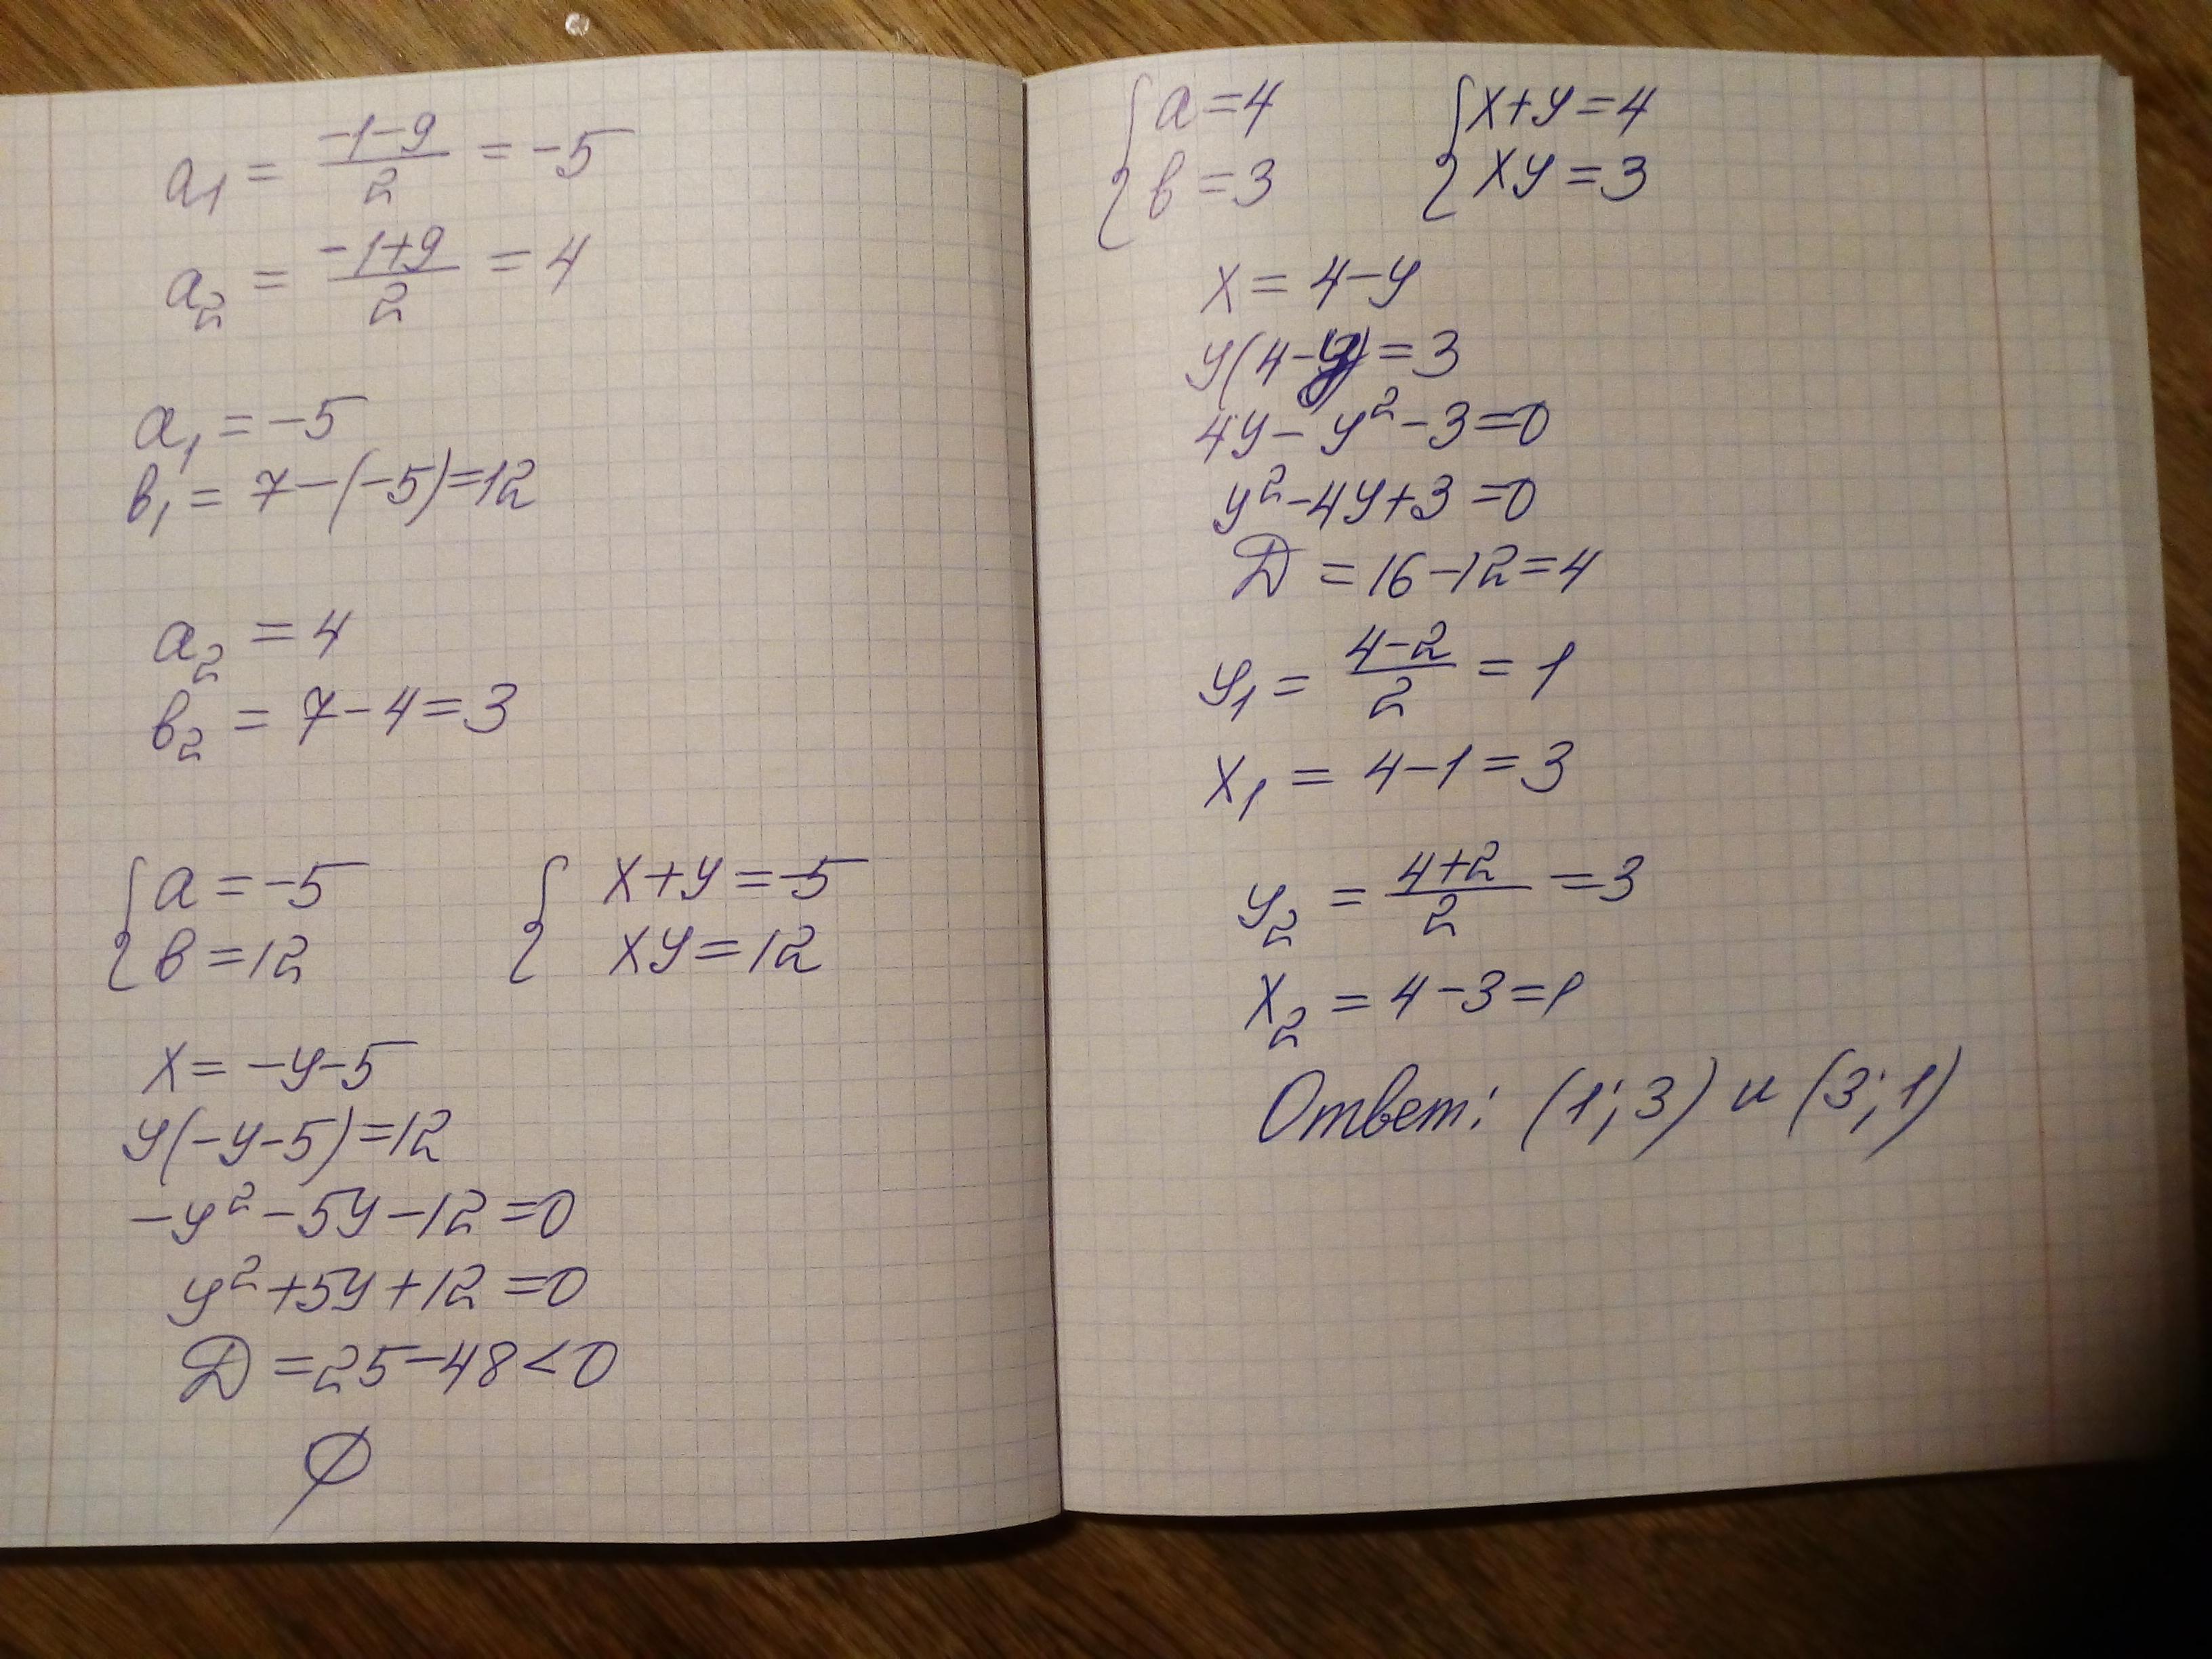 a₁ = (-1-9)/2 = -5
a₂ = (-1+9)/2 = 4
a₁ = -5
в₁ = 7-(-5)=12
a₂ = 4
в₂ = 7-4=3
{a=-5 {x+y=-5
{в=12 {xy=12
x=-y-5
y(-y-5)=12
-y²-5y-12=0
y²+5y+12=0
Д=25-48<0
∅
{a=4 {x+y=4
{в=3 {xy=3
x=4-y
y(4-y)=3
4y-y²-3=0
y²-4y+3=0
Д=16-12=4
y₁ = (4-2)/2 = 1
x₁ = 4-1=3
y₂ = (4+2)/2 = 3
x₂ = 4-3=1
Ответ: (1;3) и (3;1)